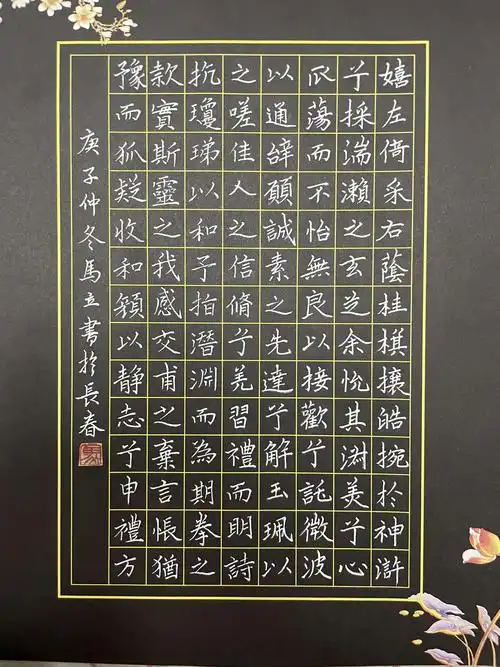 嬉左倚采右蔭桂棋攘皓捥於神滸
兮採湍瀨之玄芝余悅其淑美兮心
蕩而不怡無良以接歡兮託微波
以通辝願誠素之先達兮解玉珮以
之嗟佳人之信脩兮羌習禮而明詩
抗瓊珶以和予指潛淵而為期拳之
款實斯靈之我感交甫之棄言悵猶
豫而狐疑收和顏以静志兮申禮方
庚子仲冬馬立書於長春